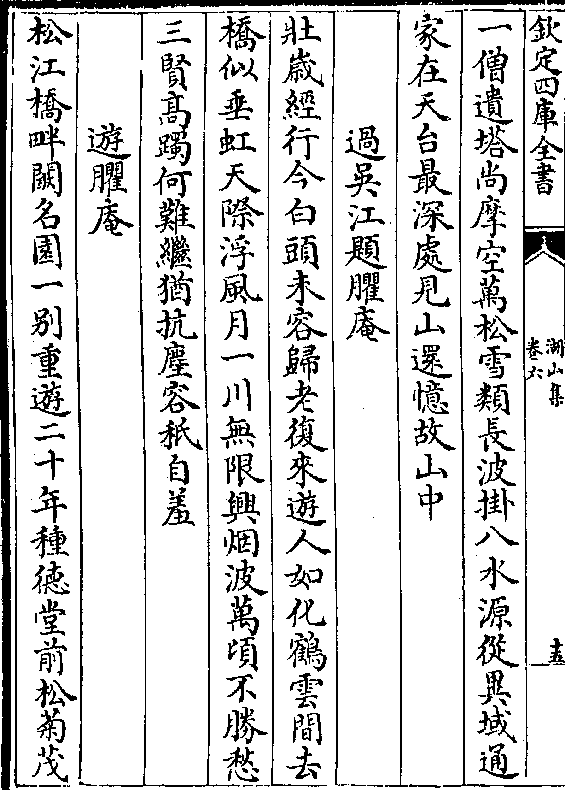 欽定四庫全書
湖山集
卷六
十五
一僧遺塔尚摩空萬松雪類長波掛八水源從異域通
家在天台最深處見山還憶故山中
過吳江題臞庵
壯歲經行今白頭未容歸老復來遊人如化鶴雲間去
橋似垂虹天際浮風月一川無限興烟波萬頃不勝愁
三賢髙躅何難繼猶抗塵容秖自羞
遊臞庵
松江橋畔闢名園一别重遊二十年種德堂前松菊茂